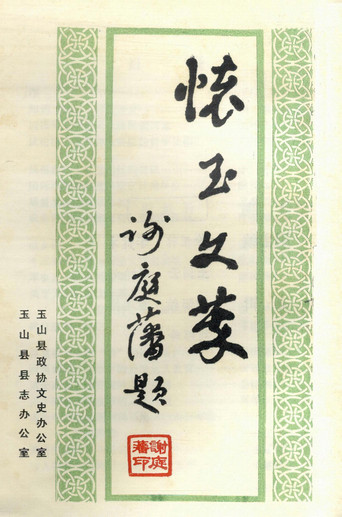 懷玉文萃
谢庭藩题
謝庭
藩印
玉山县政协文史办公室
玉山县县志办公室